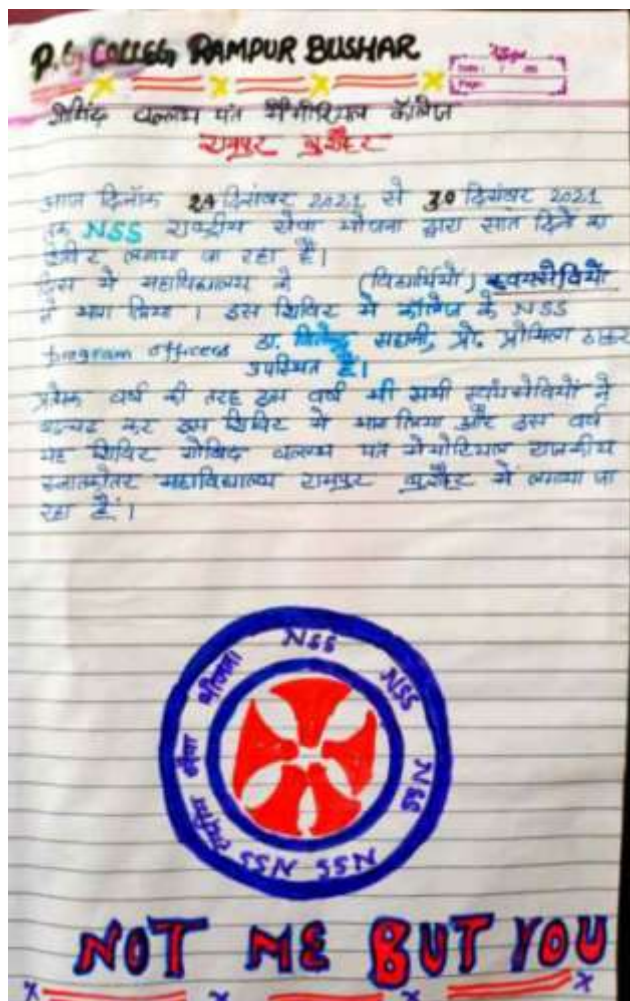 P.G COLLEG, RAMPUR BUSHAR
गोविंद वल्लभ पंत मैमोरियल कॉलेज
रामपुर बुशैहर
आज दिनाँक 24 दिसंबर 2021 से 30 दिसंबर 2021
तक NSS राष्ट्रीय सेवा योजना द्वारा सात दिनों का
शिविर लगाया जा रहा है।
इस में महाविद्यालय के (विद्यार्थियों) स्वयंसेवियों
ने भाग लिया। इस शिविर में कॉलेज के NSS
program officers डा. सहानी, प्रो. प्रोमिला ठाकुर
उपस्थित है।
प्रत्येक वर्ष की तरह इस वर्ष भी सभी स्वंयसेवियों ने
बढ़चढ़ कर इस शिविर में भाग लिया और इस वर्ष
यह शिविर गोविंद वल्लभ पंत मेमोरियल राजकीय
स्नातकोत्तर महाविद्यालय रामपुर बुशैहर में लगाया जा
रहा है।
राष्ट्रीय सेवा योजना NSS NSS NSS NSS NSS
NOT ME BUT YOU